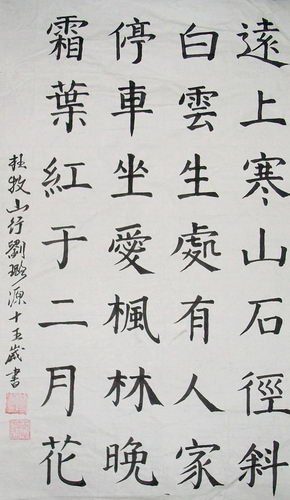 遠上寒山石徑斜
白雲生處有人家
停車坐愛楓林晚
霜葉紅于二月花
杜牧山行劉璐源十五歲書